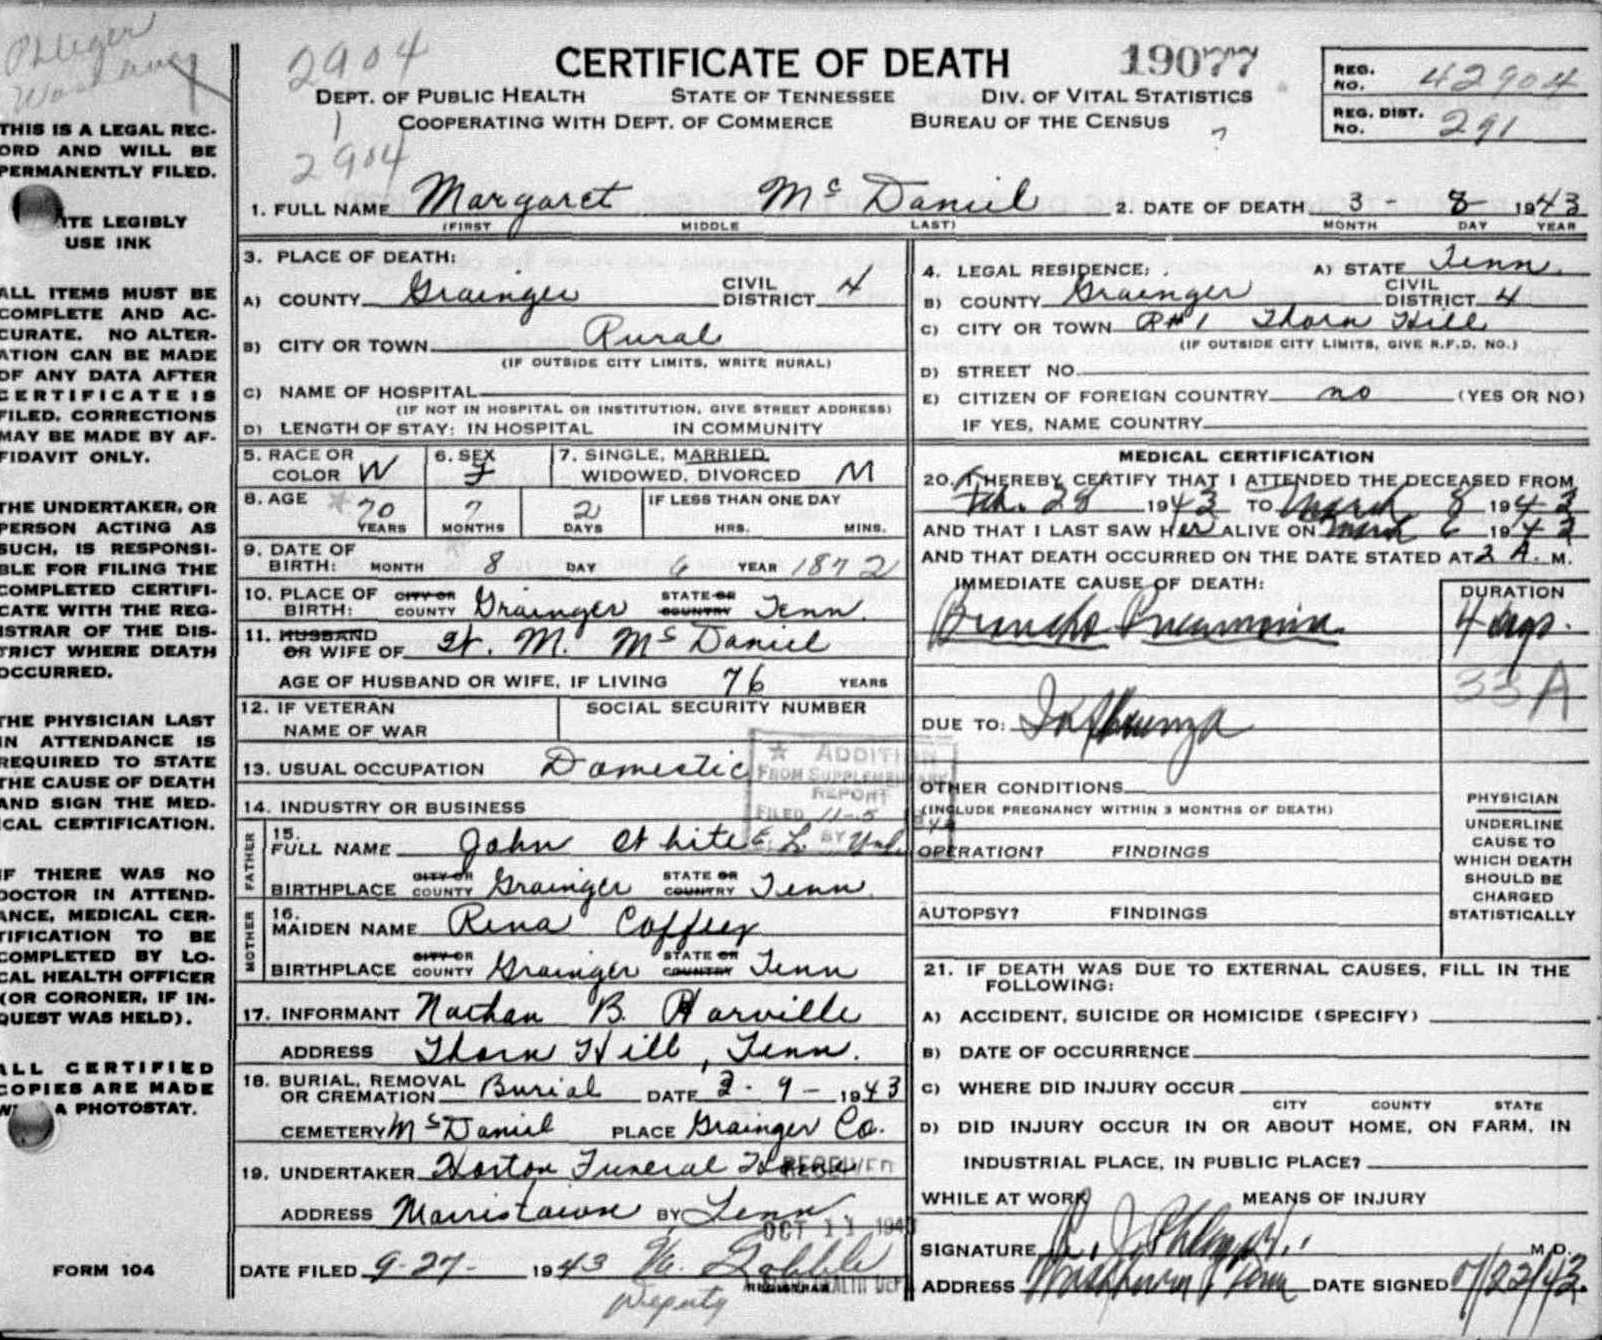 Phleger
2904
CERTIFICATE OF DEATH
19077
REG. NO. 42904
DEPT. OF PUBLIC HEALTH STATE OF TENNESSEE DIV. OF VITAL STATISTICS
1 COOPERATING WITH DEPT. OF COMMERCE BUREAU OF THE CENSUS ?
REG. DIST. NO. 291
2904
THIS IS A LEGAL REC-
ORD AND WILL BE
PERMANENTLY FILED.
ITE LEGIBLY
USE INK
ALL ITEMS MUST BE
COMPLETE AND AC-
CURATE. NO ALTER-
ATION CAN BE MADE
OF ANY DATA AFTER
CERTIFICATE IS
FILED. CORRECTIONS
MAY BE MADE BY AF-
FIDAVIT ONLY.
THE UNDERTAKER, OR
PERSON ACTING AS
SUCH, IS RESPONSI-
BLE FOR FILING THE
COMPLETED CERTIFI-
CATE WITH THE REG-
ISTRAR OF THE DIS-
TRICT WHERE DEATH
OCCURRED.
THE PHYSICIAN LAST
IN ATTENDANCE IS
REQUIRED TO STATE
THE CAUSE OF DEATH
AND SIGN THE MED-
ICAL CERTIFICATION.
IF THERE WAS NO
DOCTOR IN ATTEND-
ANCE, MEDICAL CER-
TIFICATION TO BE
COMPLETED BY LO-
CAL HEALTH OFFICER
(OR CORONER, IF IN-
QUEST WAS HELD).
ALL CERTIFIED
COPIES ARE MADE
A PHOTOSTAT.
FORM 104
1. FULL NAME Margaret McDaniel 2. DATE OF DEATH 3 - 8 1943
(FIRST MIDDLE LAST) MONTH DAY YEAR
3. PLACE OF DEATH:
A) COUNTY Grainger CIVIL DISTRICT 4
B) CITY OR TOWN Rural
(IF OUTSIDE CITY LIMITS, WRITE RURAL)
C) NAME OF HOSPITAL
(IF NOT IN HOSPITAL OR INSTITUTION, GIVE STREET ADDRESS)
D) LENGTH OF STAY: IN HOSPITAL IN COMMUNITY
5. RACE OR COLOR W 6. SEX F 7. SINGLE, MARRIED, WIDOWED, DIVORCED M
8. AGE 70 YEARS 7 MONTHS 2 DAYS IF LESS THAN ONE DAY HRS. MINS.
9. DATE OF BIRTH: MONTH 8 DAY 6 YEAR 1872
10. PLACE OF BIRTH: CITY OR COUNTY Grainger STATE OR COUNTRY Tenn.
11. HUSBAND OR WIFE OF W. M. McDaniel
AGE OF HUSBAND OR WIFE, IF LIVING 76 YEARS
12. IF VETERAN NAME OF WAR SOCIAL SECURITY NUMBER
13. USUAL OCCUPATION Domestic
ADDITION
FROM SUPPLEMENTARY
REPORT
FILED 11-5
BY
14. INDUSTRY OR BUSINESS
FATHER
15. FULL NAME John White
BIRTHPLACE CITY OR COUNTY Grainger STATE OR COUNTRY Tenn.
MOTHER
16. MAIDEN NAME Rena Coffey
BIRTHPLACE CITY OR COUNTY Grainger STATE OR COUNTRY Tenn
17. INFORMANT Nathan B. Harville
ADDRESS Thorn Hill, Tenn.
18. BURIAL, REMOVAL OR CREMATION Burial DATE 3 - 9 - 1943
CEMETERY McDaniel PLACE Grainger Co.
19. UNDERTAKER Horton Funeral Home
RECEIVED
ADDRESS Morristown BY Tenn
OCT 11 194
DATE FILED 9-27- 1943 Gobble
REGISTRAR
Deputy
4. LEGAL RESIDENCE: A) STATE Tenn.
B) COUNTY Grainger CIVIL DISTRICT 4
C) CITY OR TOWN R#1 Thorn Hill
(IF OUTSIDE CITY LIMITS, GIVE R.F.D. NO.)
D) STREET NO.
E) CITIZEN OF FOREIGN COUNTRY no (YES OR NO)
IF YES, NAME COUNTRY
MEDICAL CERTIFICATION
20. I HEREBY CERTIFY THAT I ATTENDED THE DECEASED FROM
Feb. 28 1943 TO March 8 1943
AND THAT I LAST SAW Her ALIVE ON March 6 1943
AND THAT DEATH OCCURRED ON THE DATE STATED AT 2 A. M.
IMMEDIATE CAUSE OF DEATH: DURATION
Broncho Pneumonia 4 days.
33A
DUE TO: Influenza
OTHER CONDITIONS
(INCLUDE PREGNANCY WITHIN 3 MONTHS OF DEATH)
OPERATION? FINDINGS
AUTOPSY? FINDINGS
PHYSICIAN
UNDERLINE
CAUSE TO
WHICH DEATH
SHOULD BE
CHARGED
STATISTICALLY
21. IF DEATH WAS DUE TO EXTERNAL CAUSES, FILL IN THE
FOLLOWING:
A) ACCIDENT, SUICIDE OR HOMICIDE (SPECIFY)
B) DATE OF OCCURRENCE
C) WHERE DID INJURY OCCUR
CITY COUNTY STATE
D) DID INJURY OCCUR IN OR ABOUT HOME, ON FARM, IN
INDUSTRIAL PLACE, IN PUBLIC PLACE?
WHILE AT WORK MEANS OF INJURY
SIGNATURE Phlegar M.D.
ADDRESS Washburn Tenn DATE SIGNED